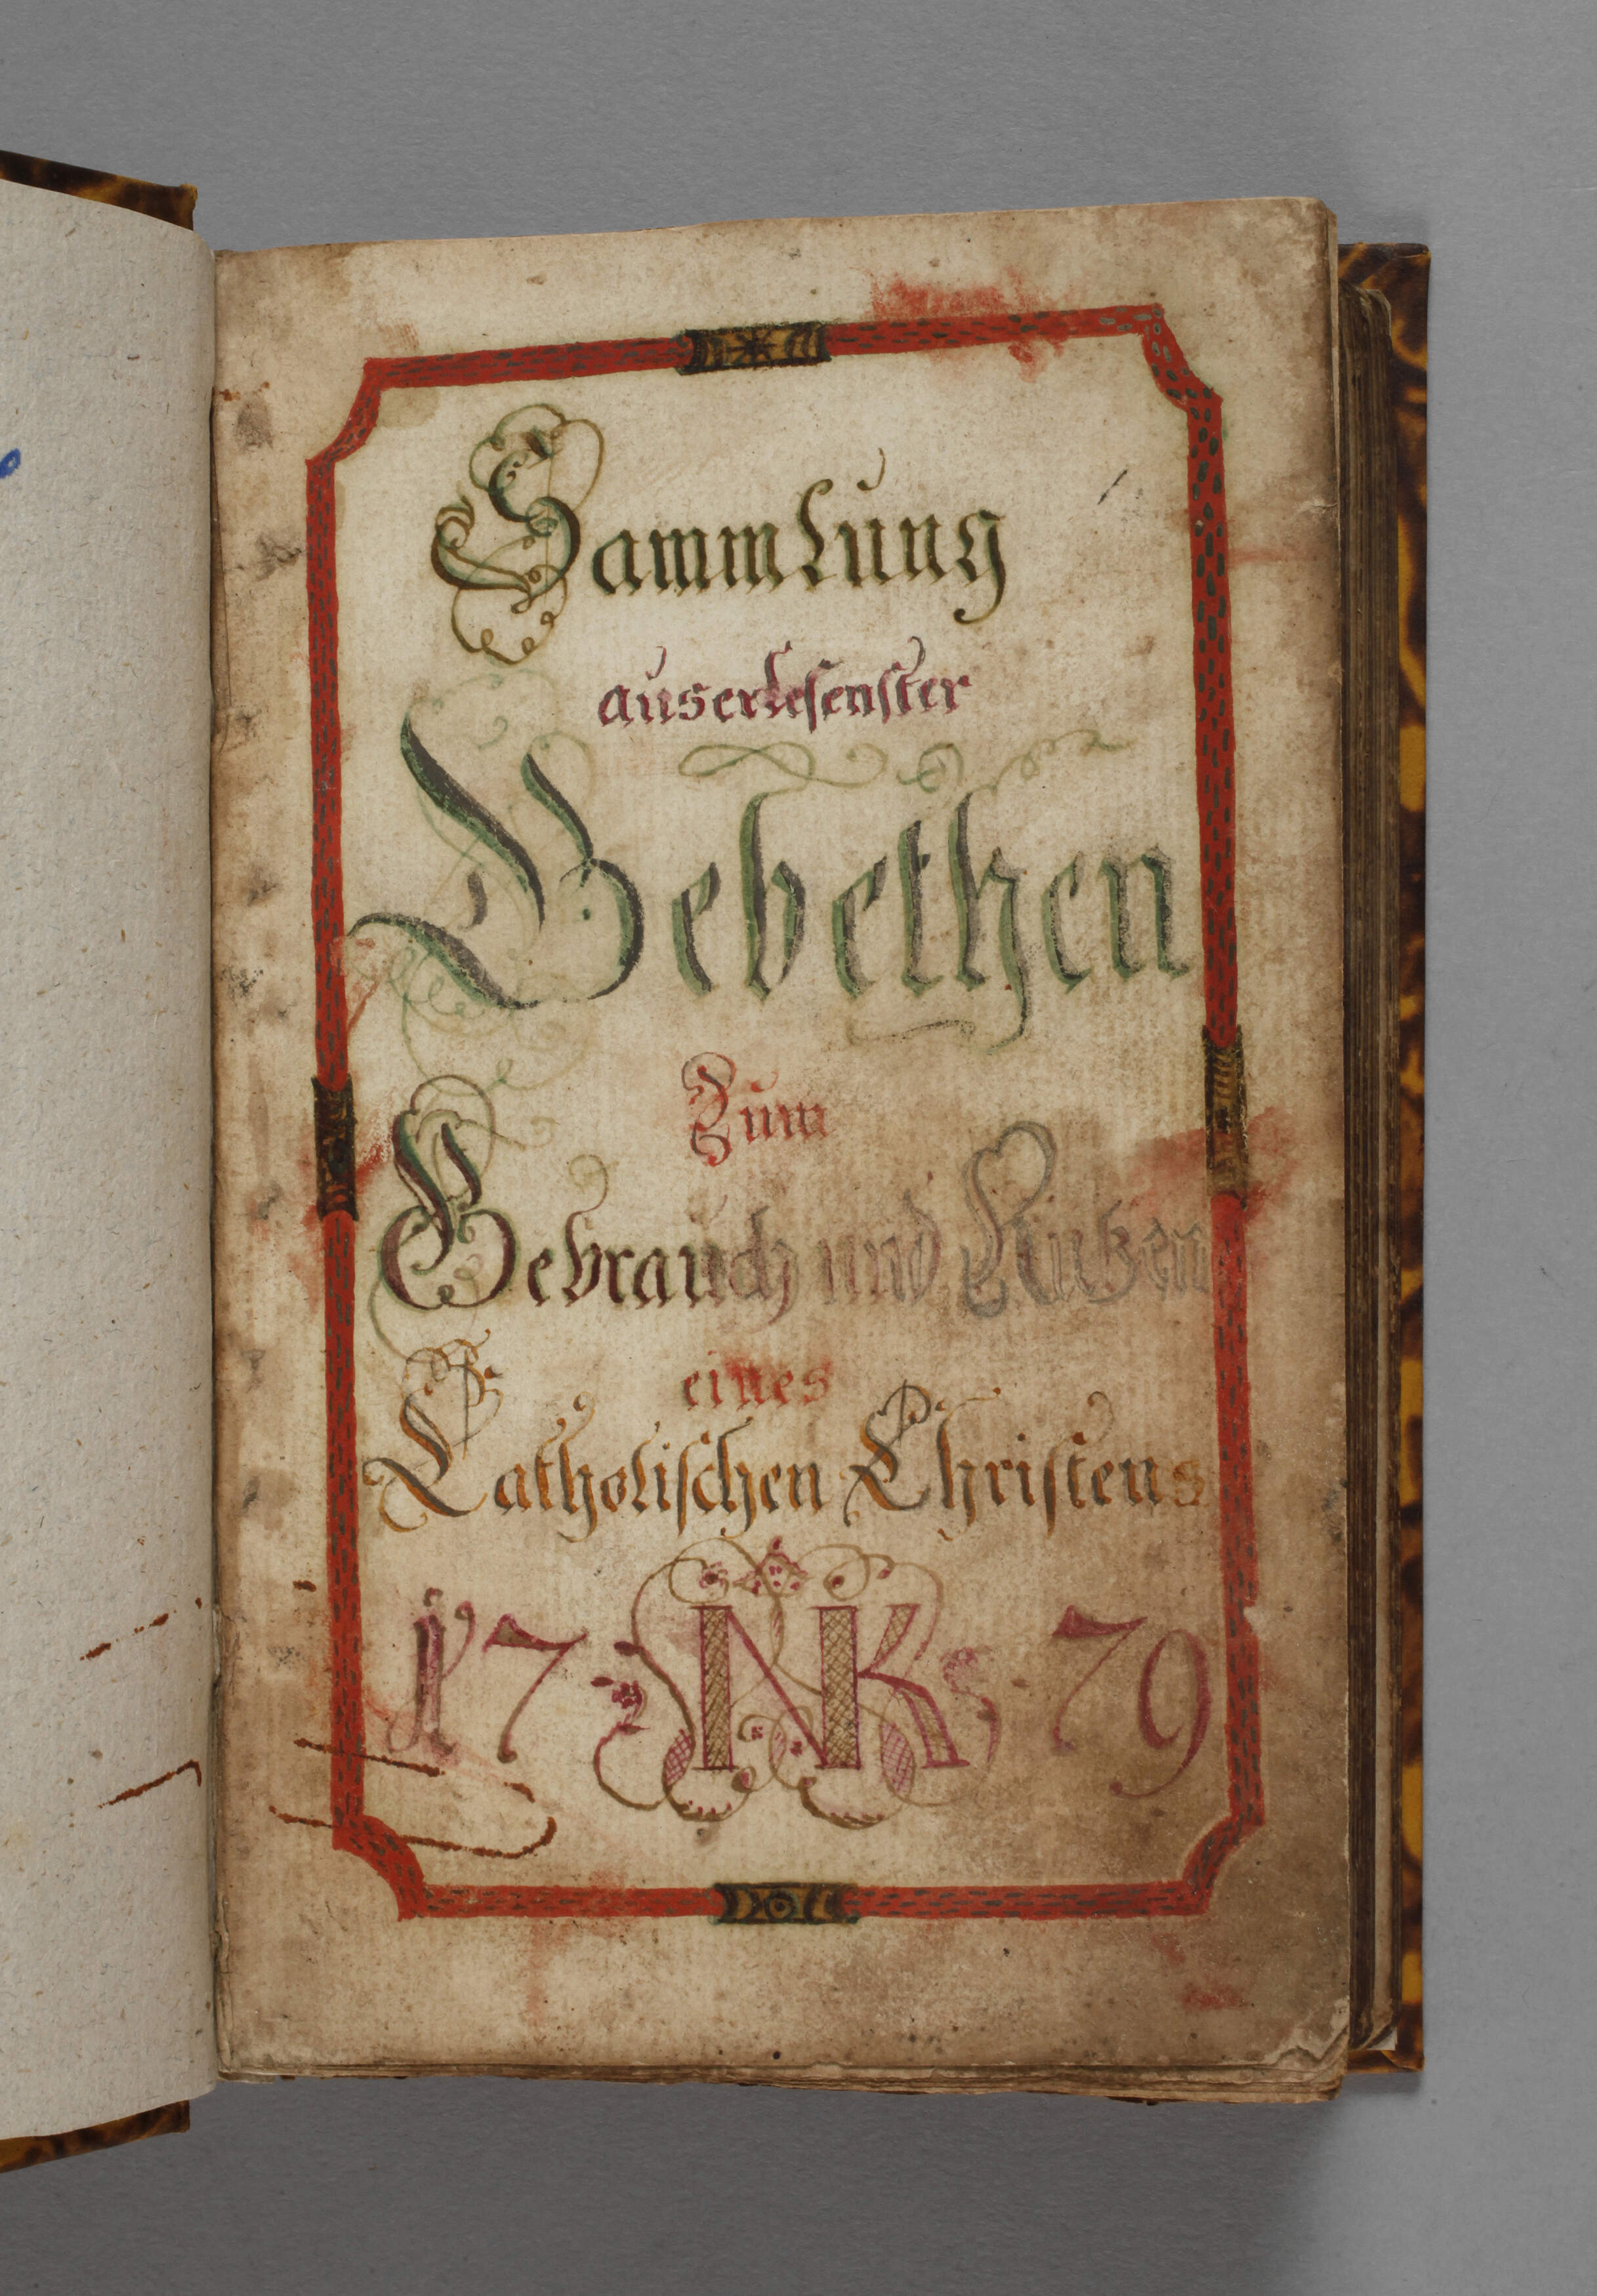 Sammlung
auserlesenster
Gebethen
Zum
Gebrauch und Nutzen
eines
Catholischen Christens
17 NK 79